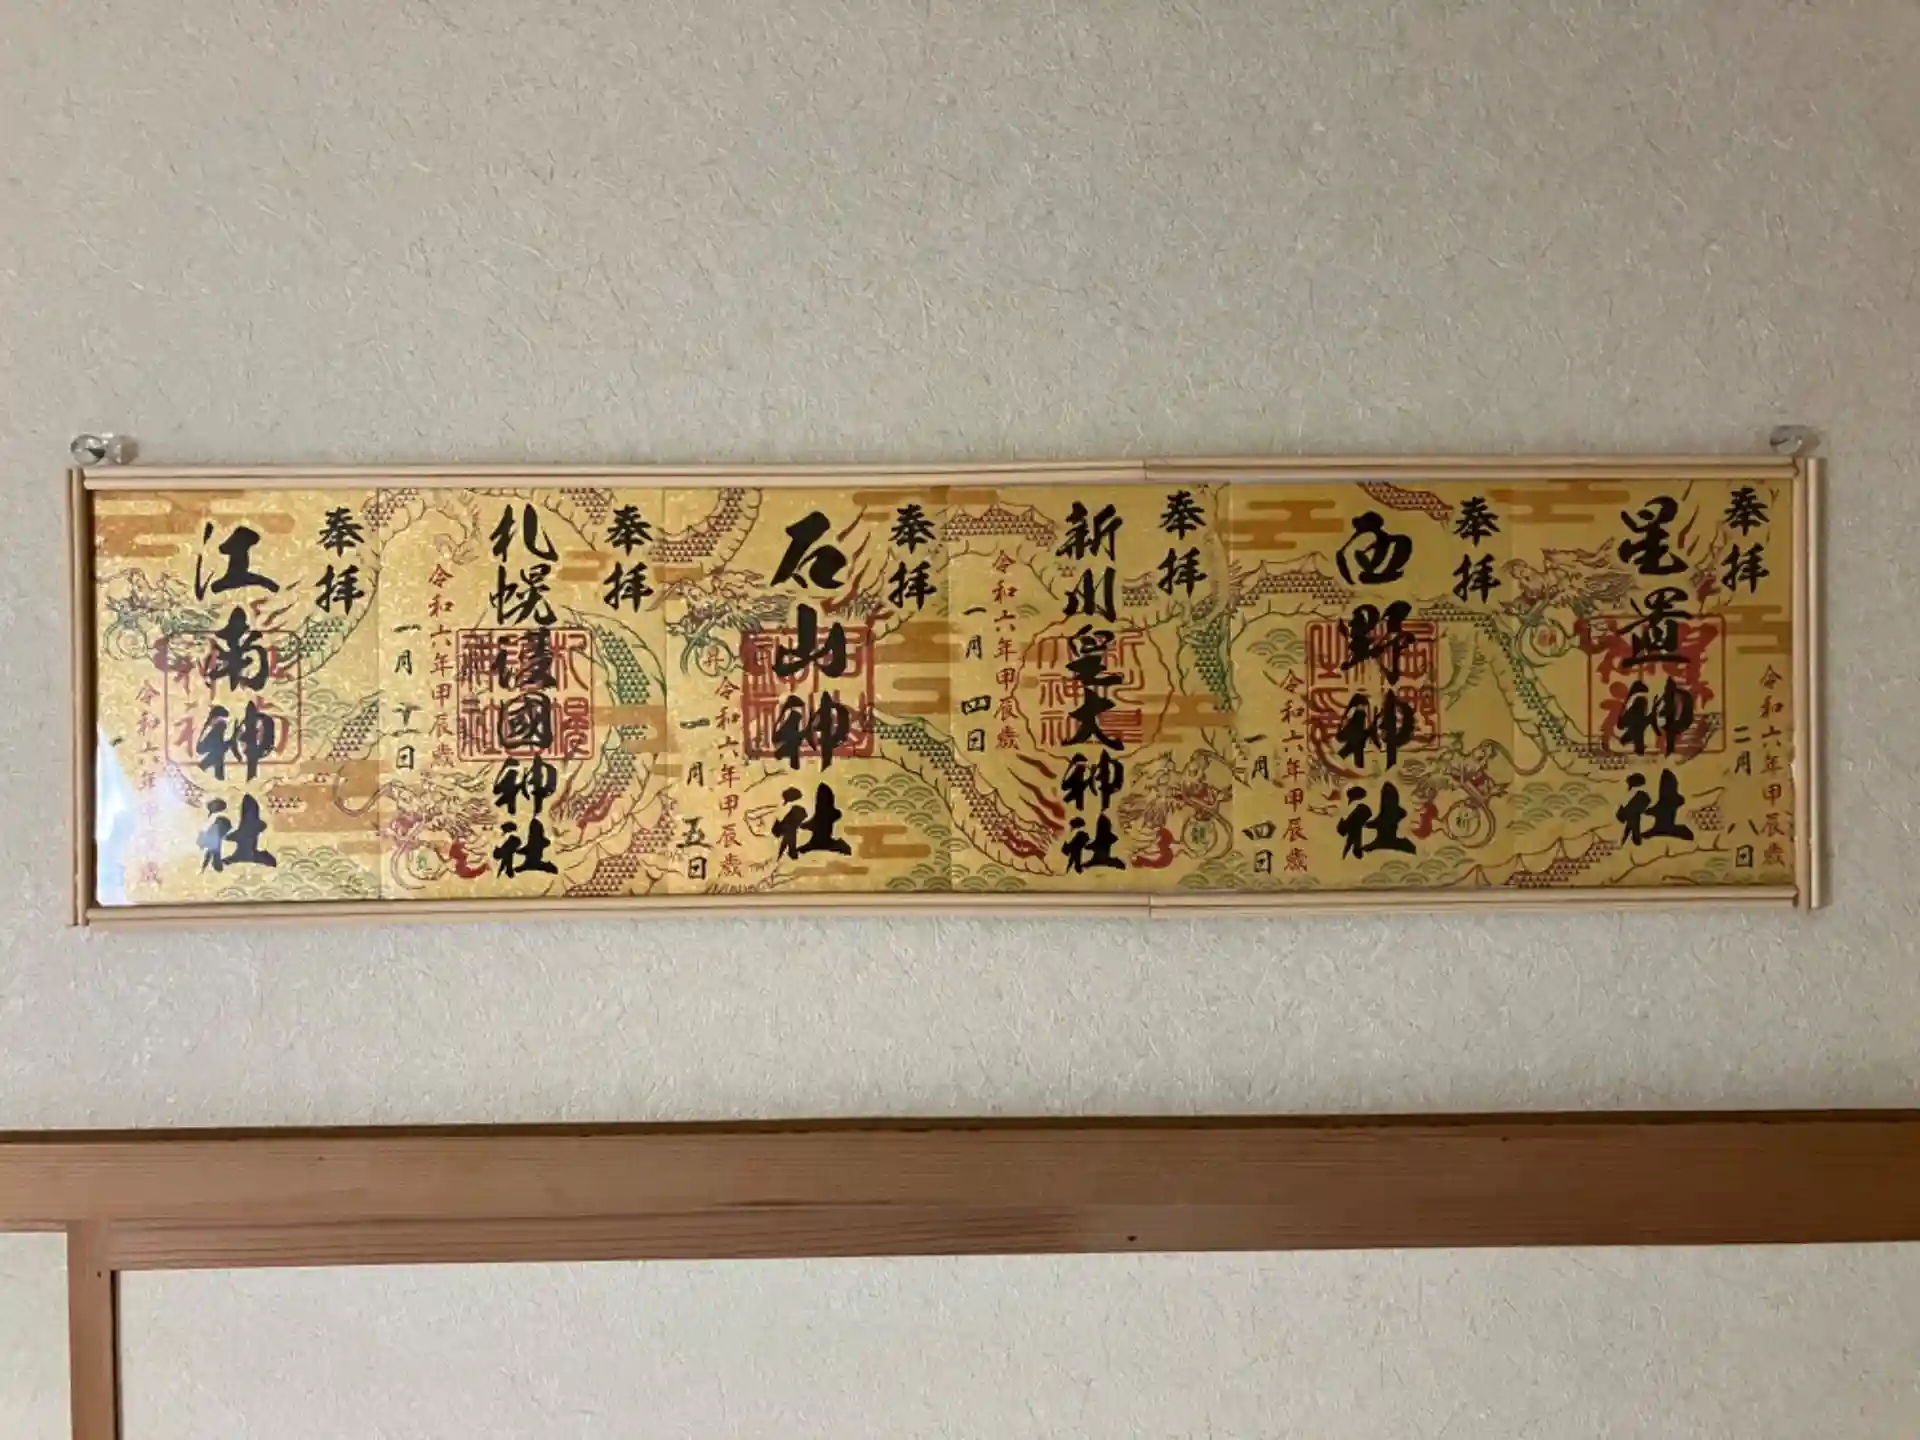 奉拝
星置神社
令和六年甲辰歳
二月八日
奉拝
西野神社
令和六年甲辰歳
一月四日
奉拝
新川皇大神社
令和六年甲辰歳
一月四日
奉拝
石山神社
令和六年甲辰歳
一月五日
奉拝
札幌護國神社
令和六年甲辰歳
一月十一日
奉拝
江南神社
令和六年甲
歳